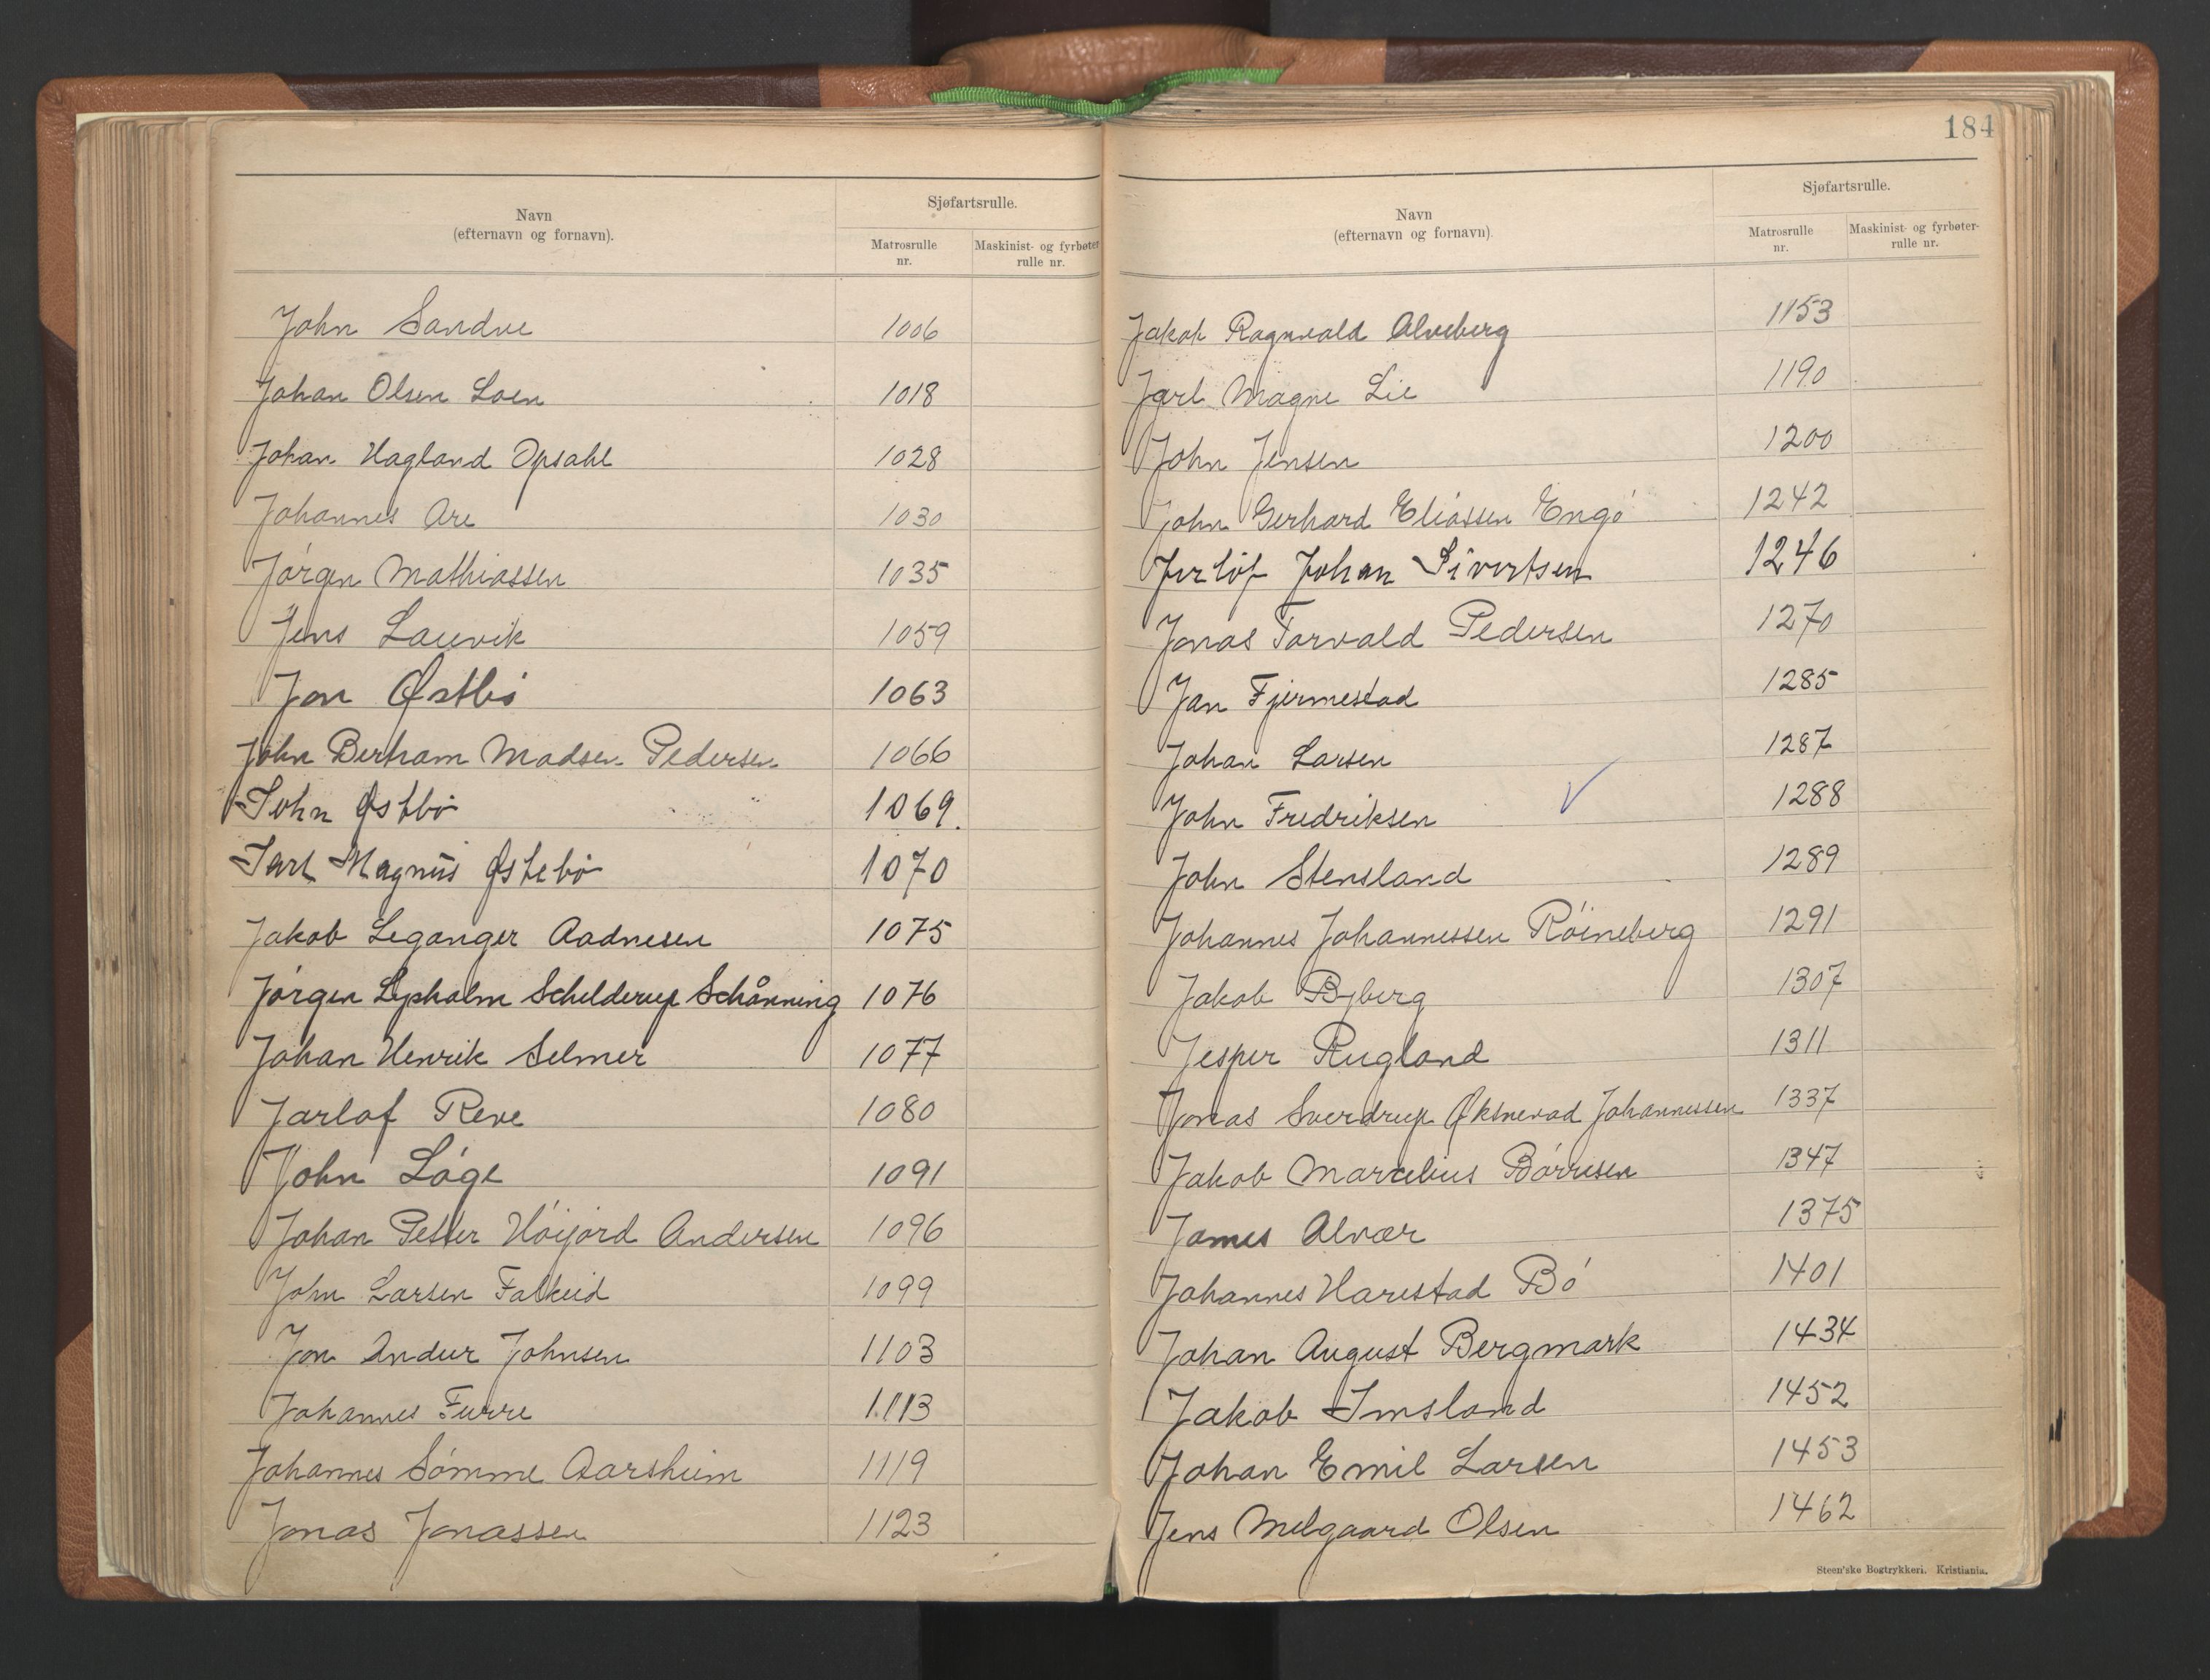 Navn
(efternavn og fornavn).
Sjøfartsrulle.
Matrosrulle
nr.
Maskinist- og fyrbøter
rulle nr.
John Sandve 1006
Johan Olsen Loen 1018
Johan Hagland Opsahl 1028
Johannes Are 1030
Jørgen Mathiassen 1035
Jens Lauvik 1059
Jon Østbø 1063
John Bertram Madsen Pedersen 1066
John Østbø 1069.
Jarl Magnus Østebø 1070
Jakob Leganger Aadnesen 1075
Jørgen Lypholm Schelderup Schånning 1076
Johan Henrik Selmer 1077
Jarlof Reve 1080
John Løge 1091
Johan Petter Høijord Andersen 1096
John Larsen Falkeid 1099
Jon Andur Johnsen 1103
Johannes Furre 1113
Johannes Sømme Aarsheim 1119
Jonas Jonassen 1123
184
Navn
(efternavn og fornavn)
Sjøfartsrulle.
Matrosrulle
nr.
Maskinist- og fyrbøter-
rulle nr.
Jakob Ragnvald Alveberg 1153
Jarl Magne Lie 1190
John Jensen 1200
John Gerhard Eliassen Engø 1242
Johan Sivertsen 1246
Jonas Torvald Pedersen 1270
Jan Fjermestad 1285
Johan Larsen 1287
John Fredriksen 1288
John Stensland 1289
Johannes Johannessen Røineberg 1291
Jakob Byberg 1307
Jesper Rugland 1311
Jonas Sverdrup Øksnevad Johannessen 1337
Jakob Marcelius Børresen 1347
James Alvær 1375
Johannes Harestad Bø 1401
Johan August Bergmark 1434
Jakob Imsland 1452
Johan Emil Larsen 1453
Jens Melgaard Olsen 1462
Steen'ske Bogtrykkeri. Kristiania.